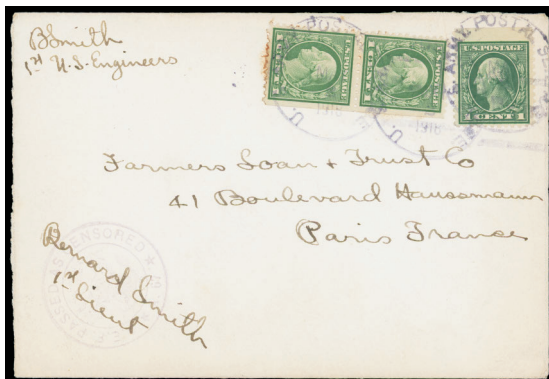 BSmith
1st U.S. Engineers
U.S. POSTAGE
1 CENT 1
U.S. POSTAGE
1 CENT 1
U.S. POSTAGE
1 CENT 1
ARMY POSTAL SE
1918
1918
Farmers Loan + Trust Co
41 Boulevard Haussmann
Paris France
Bernard Smith
1st Lieut
PASSED AS CENSORED